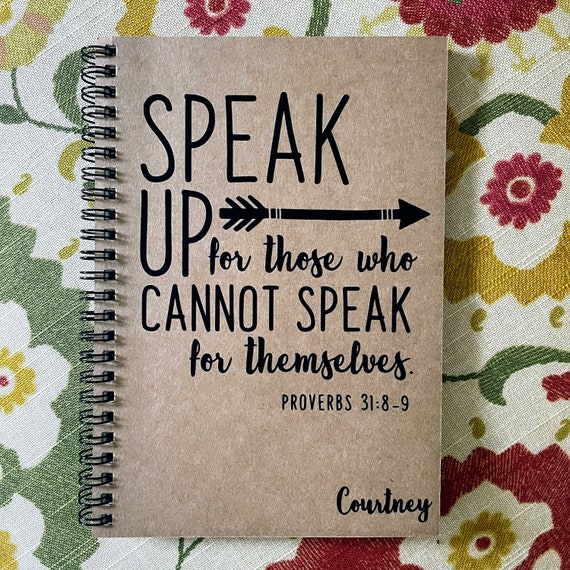 SPEAK
UP for those who
CANNOT SPEAK
for themselves.
PROVERBS 31:8-9
Courtney